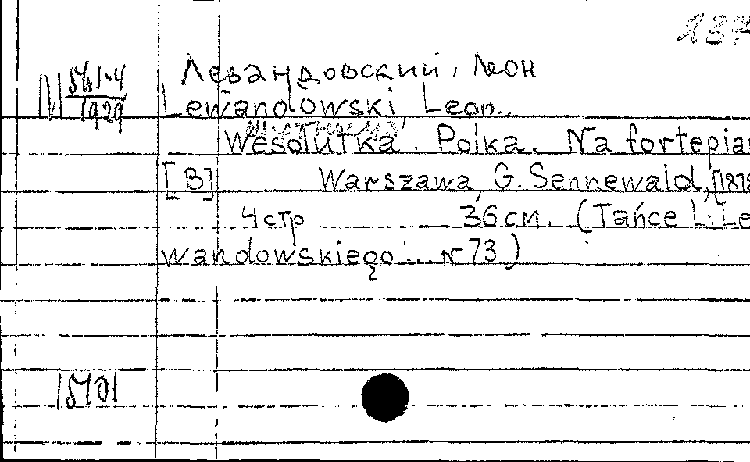 137
M 561-4
1929
Левандовский, Леон
Lewandowski, Leon.
Wesolutka. Polka. Na fortepian
[B] Warszawa, G. Sennewald, [187
4 стр 36 см. (Tańce L. Le-
wandowskiego... N 73)